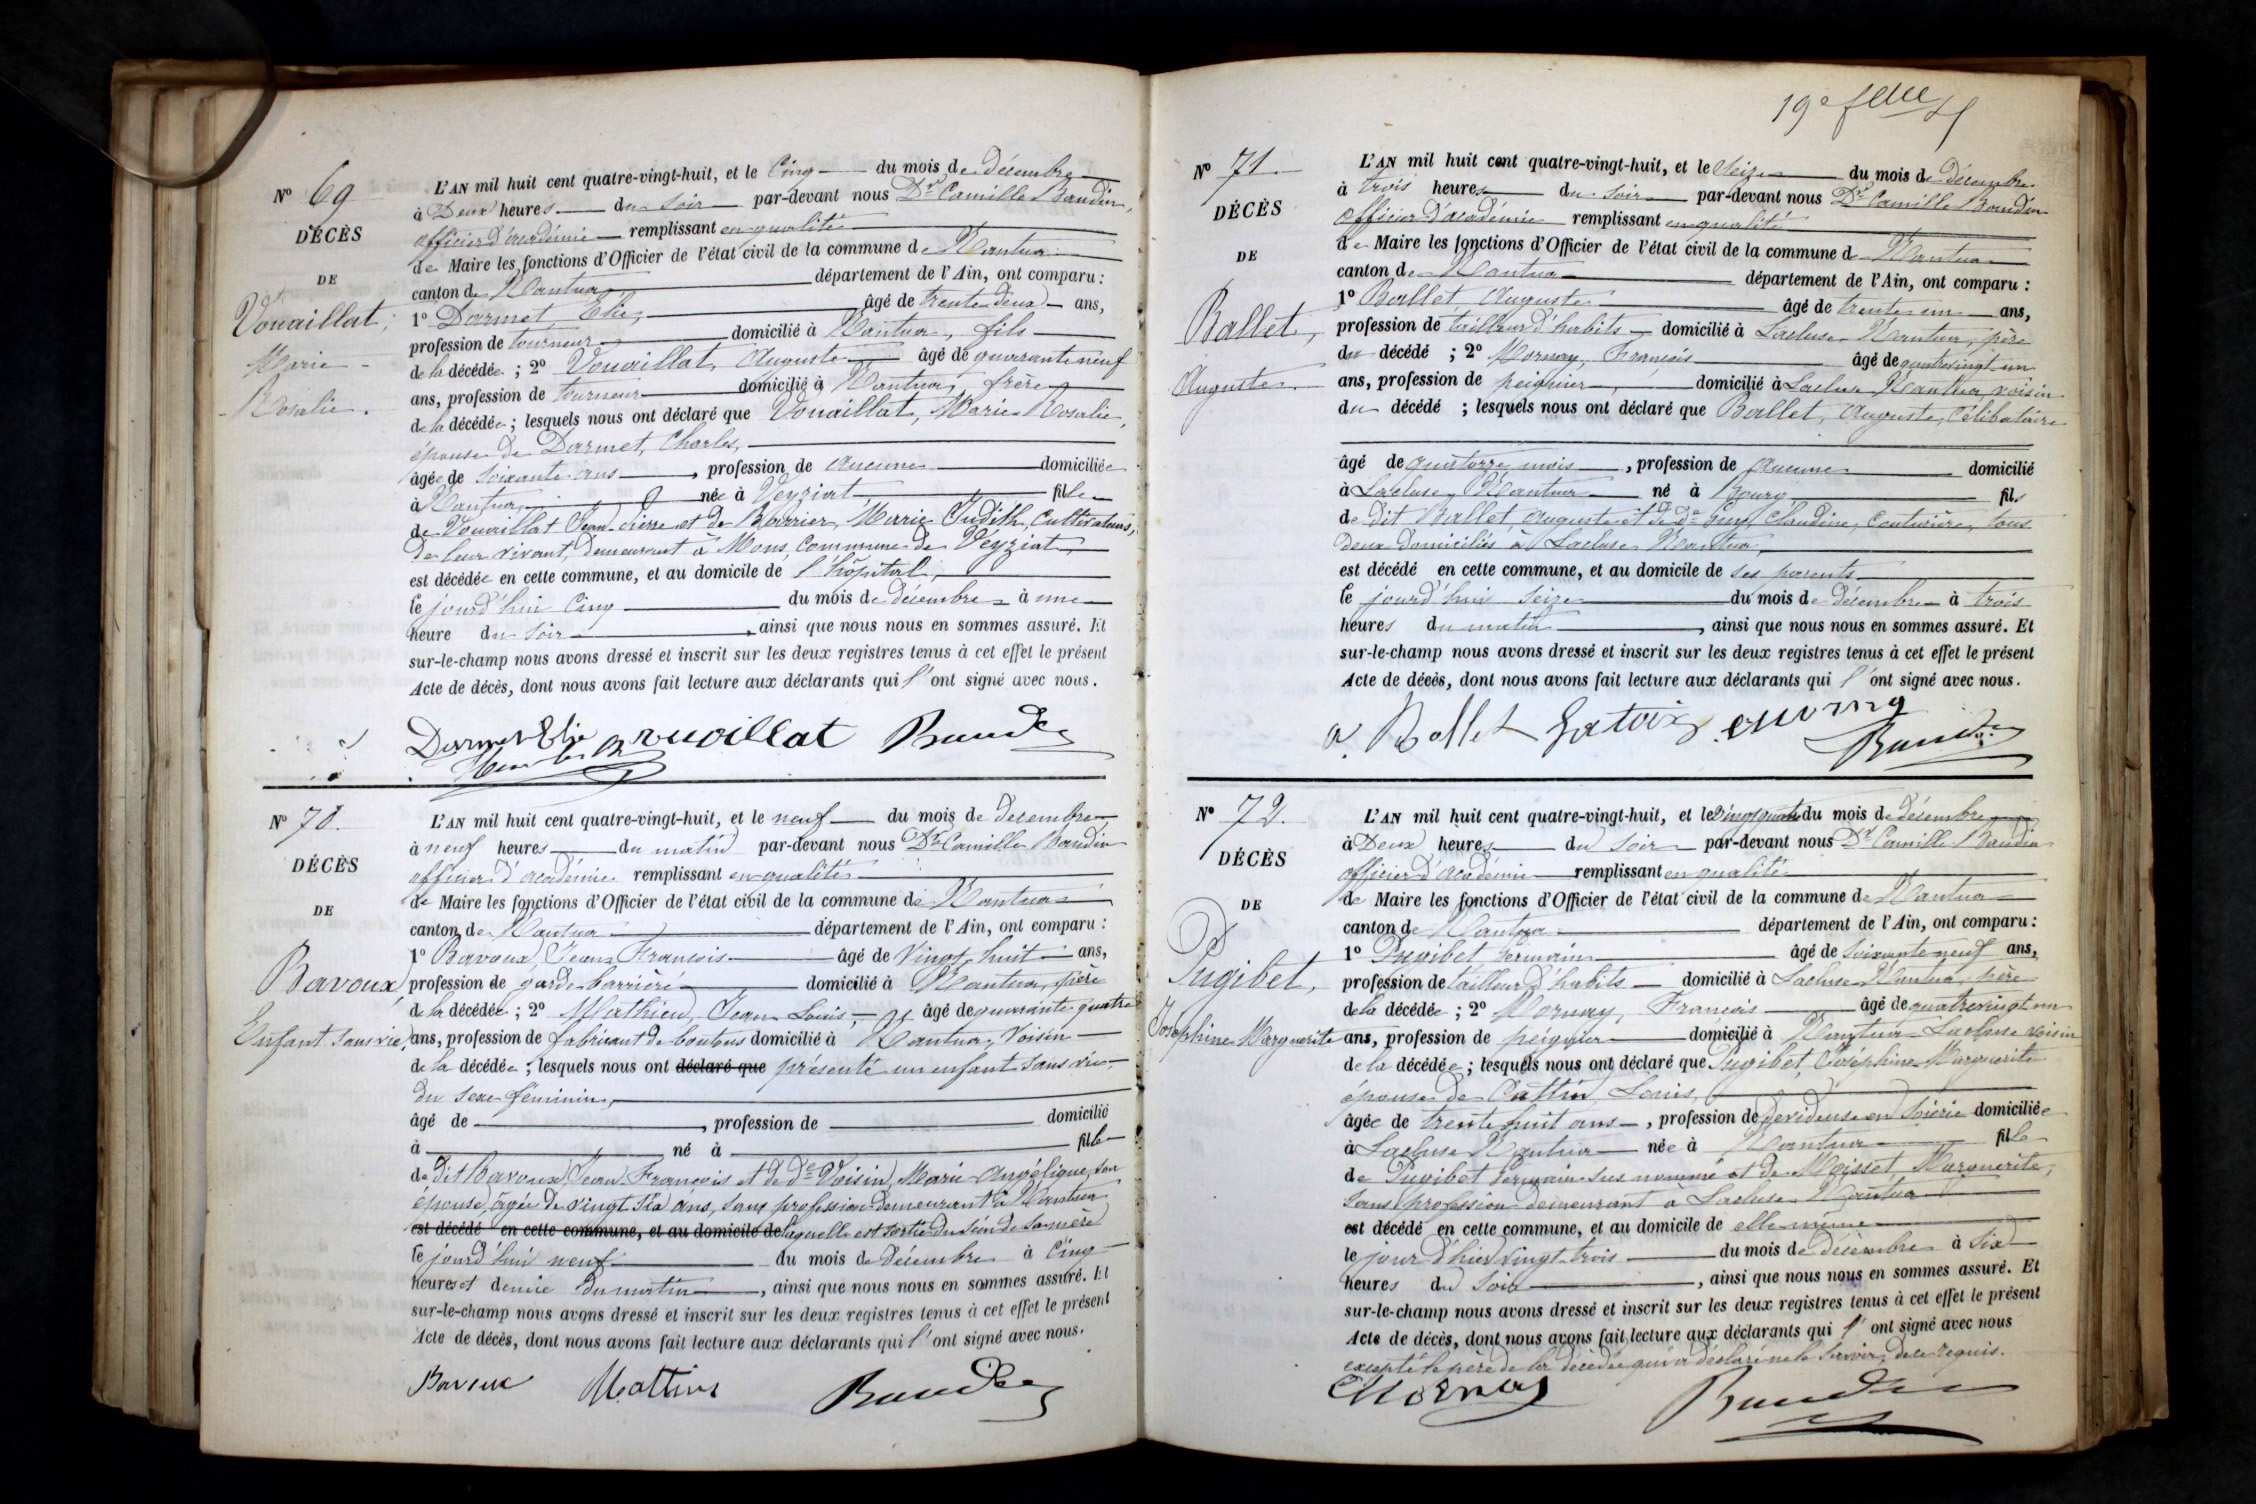 Nº 69
DÉCÈS
DE
Vouaillat,
Marie-
Rosalie.
L'AN mil huit cent quatre-vingt-huit, et le Cinq du mois de décembre
à Deux heures du soir par-devant nous Dr Camille Baudin,
officier d'académie remplissant en qualité
de Maire les fonctions d'Officier de l'état civil de la commune de Nantua
canton de Nantua département de l'Ain, ont comparu :
1º Darmet, Elie, âgé de trente deux ans,
profession de tourneur domicilié à Nantua, fils
de la décédée ; 2º Vouaillat, Auguste âgé de quarante neuf
ans, profession de tourneur domicilié à Nantua, frère
de la décédée ; lesquels nous ont déclaré que Vouaillat, Marie Rosalie,
épouse de Darmet, Charles,
âgée de soixante ans, profession de aucune domiciliée
à Nantua, née à Veyziat fille
de Vouaillat Jean-Pierre et de Barrier, Marie Judith, Cultivateurs,
de leur vivant, demeurant à Mons, commune de Veyziat,
est décédée en cette commune, et au domicile de l'hôpital,
le jourd'hui Cinq du mois de décembre à une
heure du soir, ainsi que nous nous en sommes assuré. Et
sur-le-champ nous avons dressé et inscrit sur les deux registres tenus à cet effet le présent
Acte de décès, dont nous avons fait lecture aux déclarants qui l'ont signé avec nous.
Darmet Elie Vouaillat Baudin
Nº 70.
DÉCÈS
DE
Bavoux
Enfant sans vie
L'AN mil huit cent quatre-vingt-huit, et le neuf du mois de décembre
à neuf heures du matin par-devant nous Dr Camille Baudin
officier d'académie remplissant en qualité
de Maire les fonctions d'Officier de l'état civil de la commune de Nantua
canton de Nantua département de l'Ain, ont comparu :
1º Bavoux, Jean François âgé de Vingt huit ans,
profession de garde barrière domicilié à Nantua, père
de la décédée ; 2º Mathieu, Jean Louis, âgé de quarante quatre
ans, profession de fabricant de boutons domicilié à Nantua, Voisin
de la décédée ; lesquels nous ont déclaré que présenté un enfant sans vie
du sexe féminin,
âgé de , profession de domicilié
à né à fille
de dit Bavoux, Jean François et de de Voisin, Marie Angélique, son
épouse, âgée de vingt six ans, sans profession demeurant à Nantua
est décédé en cette commune, et au domicile de laquelle est sortie du sein de sa mère
le jourd'hui neuf du mois de décembre à Cinq
heures et demie du matin, ainsi que nous nous en sommes assuré. Et
sur-le-champ nous avons dressé et inscrit sur les deux registres tenus à cet effet le présent
Acte de décès, dont nous avons fait lecture aux déclarants qui l'ont signé avec nous.
Bavoux Mathieu Baudin
19e
Nº 71.
DÉCÈS
DE
Ballet,
Auguste.
L'AN mil huit cent quatre-vingt-huit, et le Seize du mois de Décembre
à trois heures du soir par-devant nous Dr Camille Baudin
officier d'académie remplissant en qualité
de Maire les fonctions d'Officier de l'état civil de la commune d Nantua
canton de Nantua département de l'Ain, ont comparu :
1º Ballet Auguste âgé de trente un ans,
profession de tailleur d'habits domicilié à Lacluse Nantua, père
du décédé ; 2º Mornay, François âgé de quatrevingt un
ans, profession de peignier, domicilié à Lacluse Nantua, voisin
du décédé ; lesquels nous ont déclaré que Ballet, Auguste, Célibataire
âgé de quatorze mois, profession de aucune domicilié
à Lacluse, Nantua né à Bourg fils
de dit Ballet Auguste et de de Guy, Claudine, couturière, tous
deux domiciliés à Lacluse Nantua,
est décédé en cette commune, et au domicile de ses parents
le jourd'hui seize du mois de décembre à trois
heures du matin, ainsi que nous nous en sommes assuré. Et
sur-le-champ nous avons dressé et inscrit sur les deux registres tenus à cet effet le présent
Acte de décès, dont nous avons fait lecture aux déclarants qui l'ont signé avec nous.
a. Ballet Baudin
Nº 72.
DÉCÈS
DE
Pugibet,
Joséphine Marguerite
L'AN mil huit cent quatre-vingt-huit, et le Vingt quatre du mois de décembre
à Deux heures du soir par-devant nous Dr Camille Baudin
officier d'académie remplissant en qualité
de Maire les fonctions d'Officier de l'état civil de la commune de Nantua
canton de Nantua département de l'Ain, ont comparu :
1º Pugibet Germain âgé de soixante neuf ans,
profession de tailleur d'habits domicilié à Lacluse Nantua, père
de la décédée ; 2º Mornay, François âgé de quatrevingt un
ans, profession de peignier domicilié à Nantua Lacluse voisin
de la décédée ; lesquels nous ont déclaré que Pugibet, Joséphine Marguerite
épouse de Cattin Louis,
âgée de trente huit ans, profession de devideuse en soierie domiciliée
à Lacluse Nantua née à Nantua fille
de Pugibet Germain sus nommé et de Moisset, Marguerite,
sans profession demeurant à Lacluse Nantua
est décédé en cette commune, et au domicile de elle même
le jour d'hier vingt-trois du mois de décembre à Six
heures du soir, ainsi que nous nous en sommes assuré. Et
sur-le-champ nous avons dressé et inscrit sur les deux registres tenus à cet effet le présent
Acte de décès, dont nous avons fait lecture aux déclarants qui l'ont signé avec nous
excepté le père de la décédée qui a déclaré ne le savoir, de ce requis.
Mornay Baudin